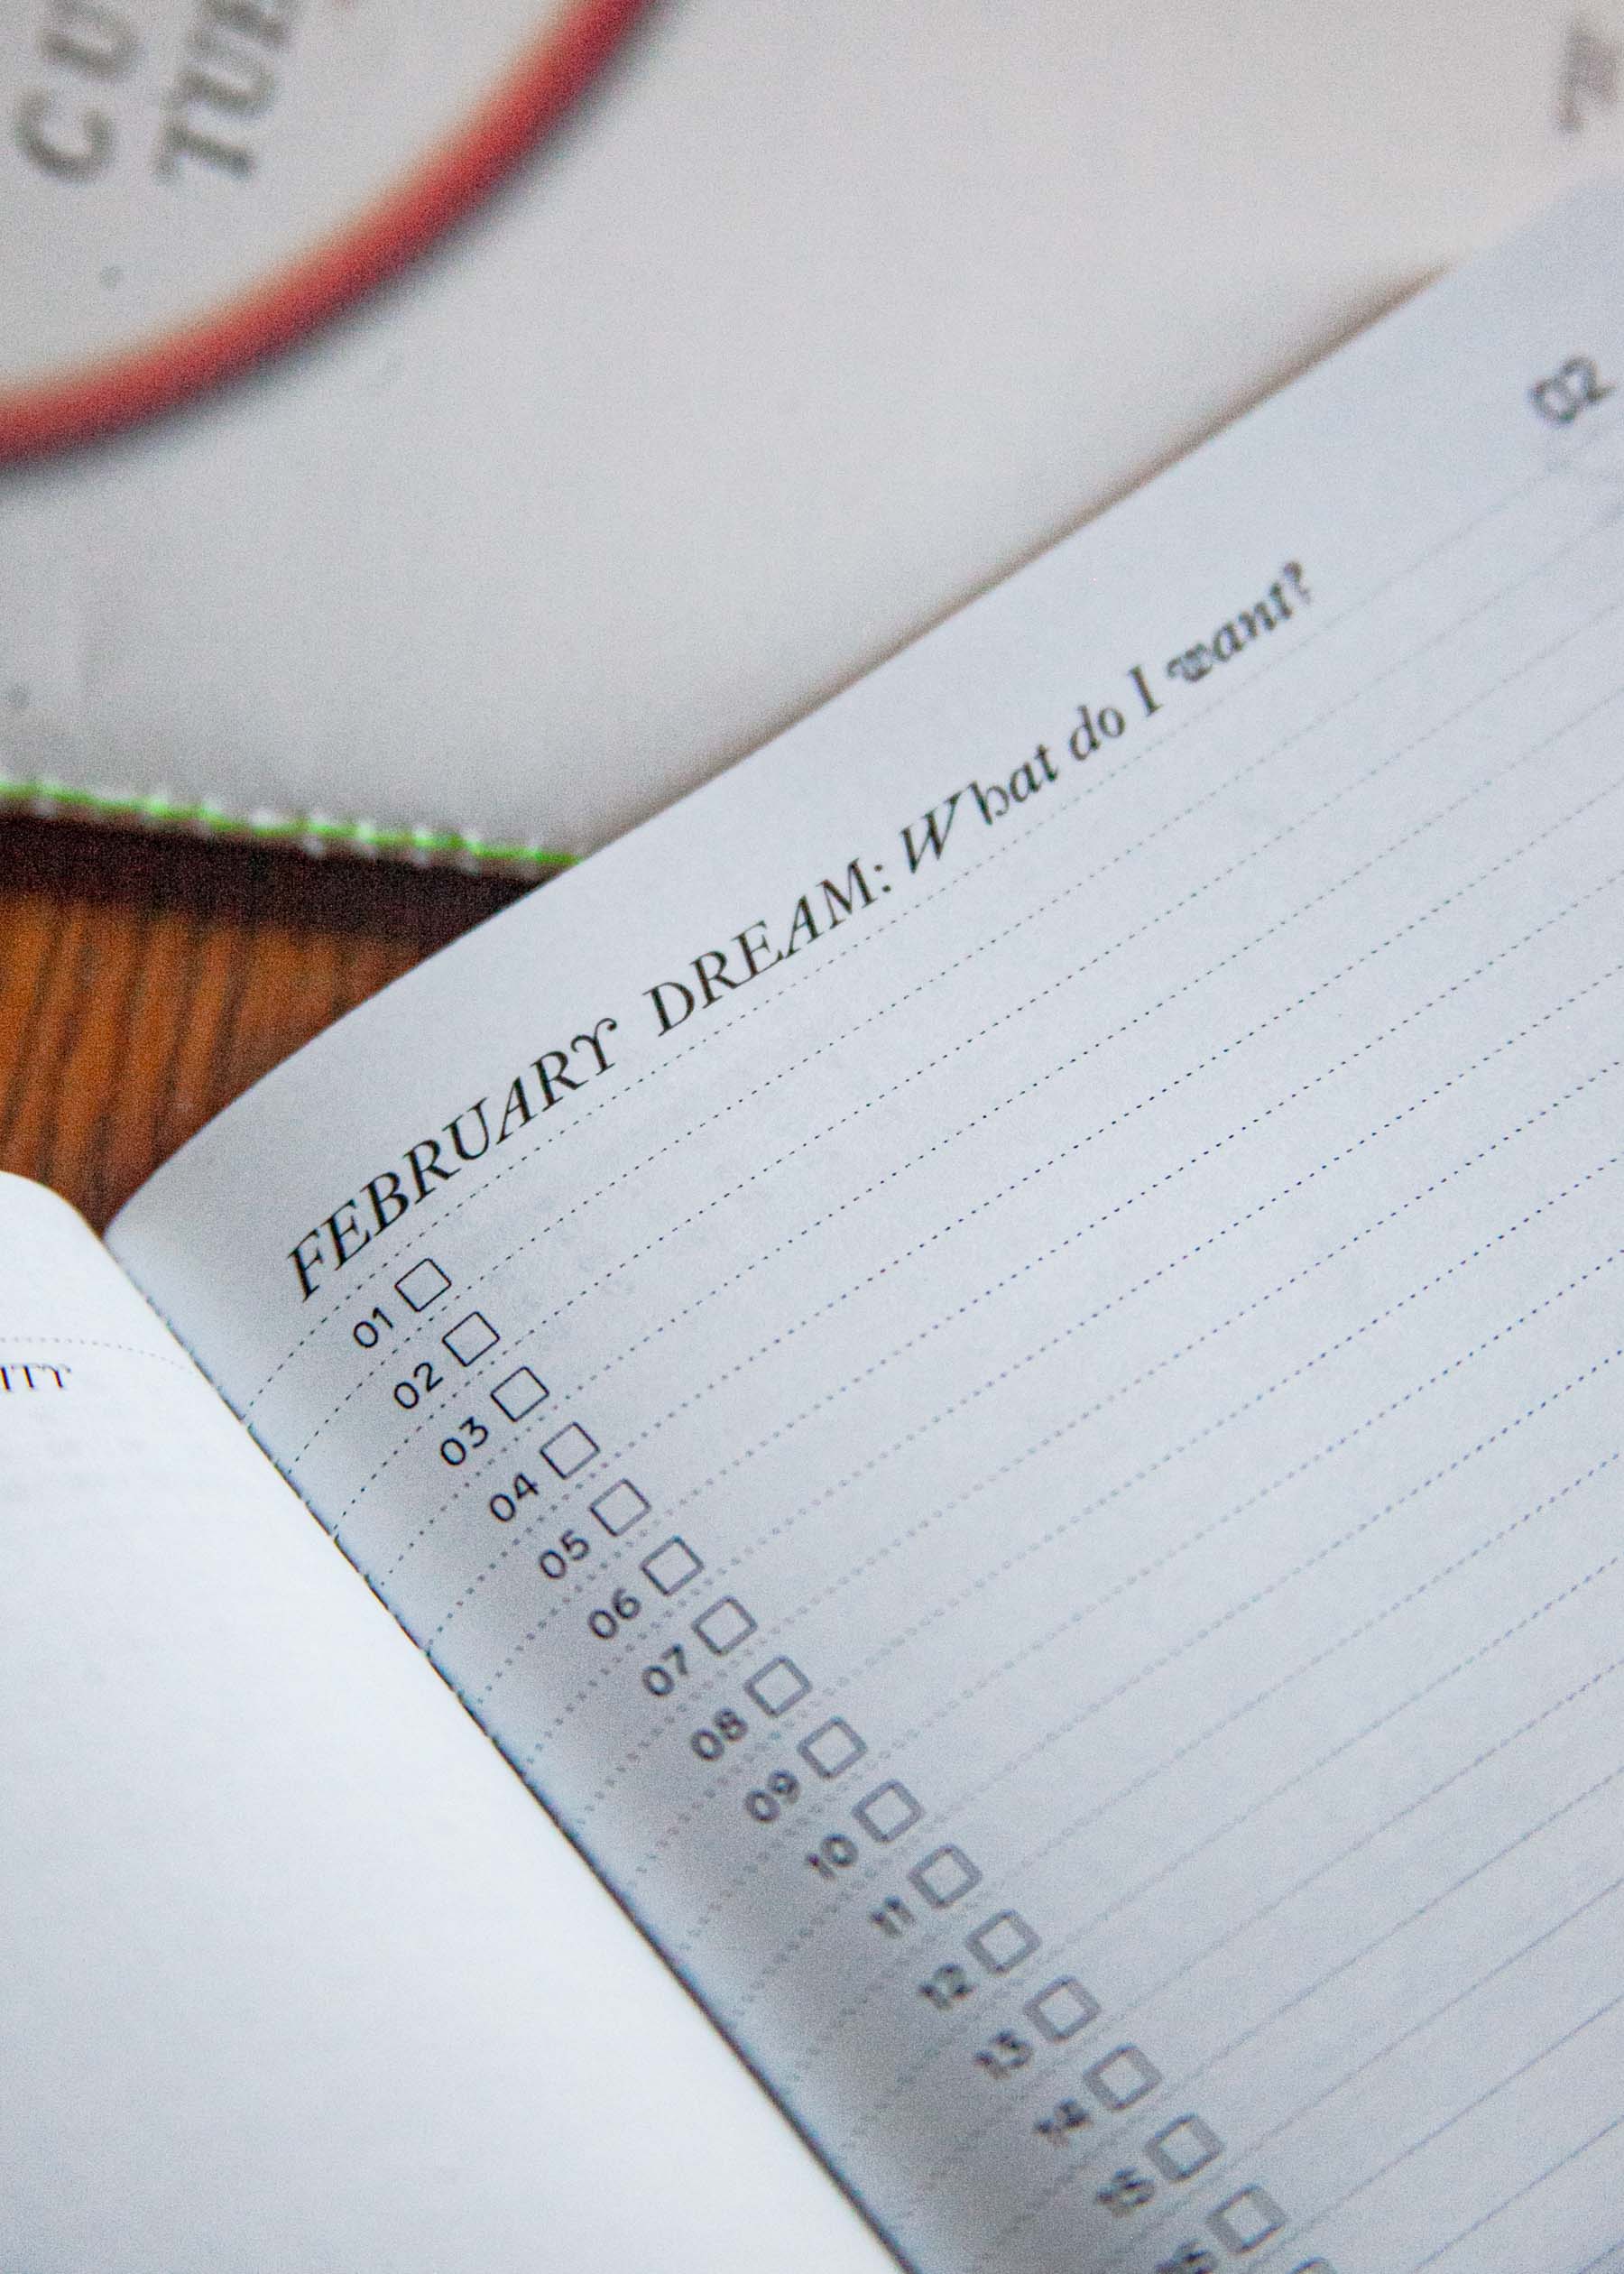 02
FEBRUARY DREAM: What do I want?
01
02
03
04
05
06
07
08
09
10
11
12
13
14
15
16
ITY
CU
TUR